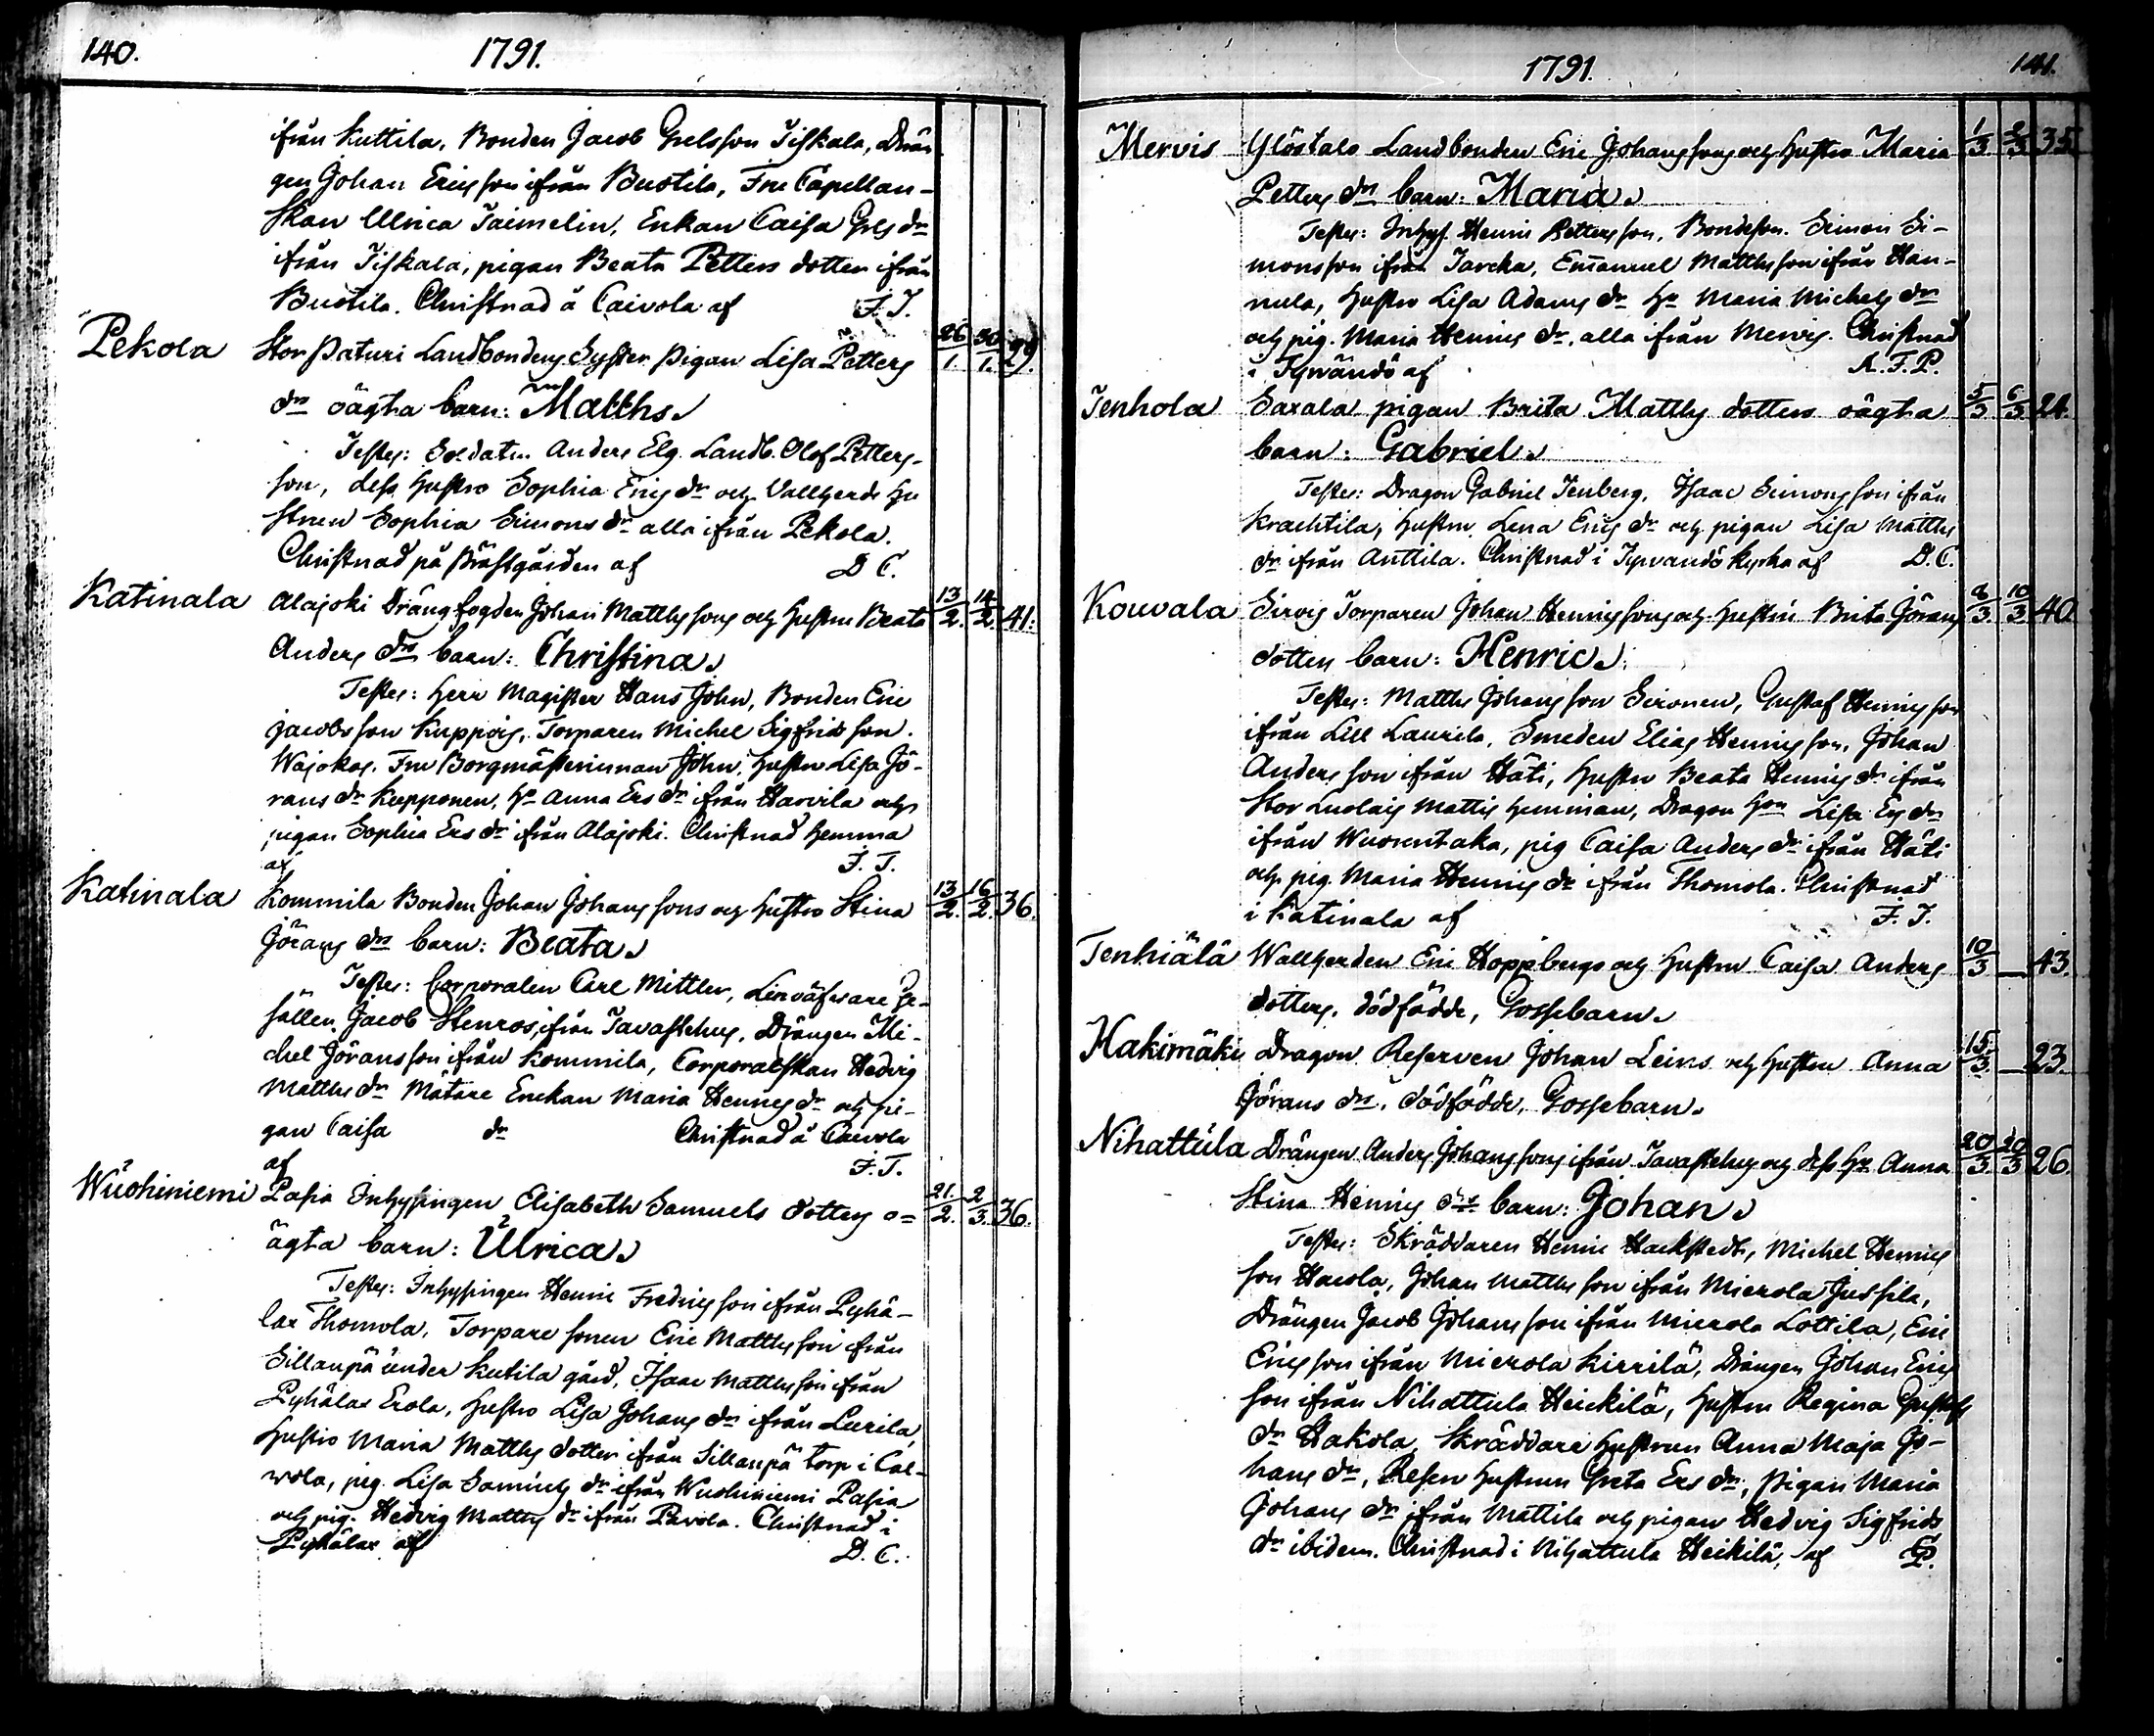 140. 1791.
ifrån Kuttila, Bonden Jacob Grelsson Jiskala, Drän
gen Johan Ericsson ifrån Buotila, Fru Capellan-
skan Ulrica Taimelin, Enkan Caisa Grls dr
ifrån Jiskala, pigan Beata Petters dotter ifrån
Buotila. Christnad å Caivola af F. T.
Pekola Stor Paturi Landbondens Syster Pigan Lisa Petters 26/1. 30/1. 29.
drs oägta barn: Matths.
Testes: Soldaten Anders Elg. Landb. Olof Petters-
son, dess hustro Sophia Erics dr och Vallherds hu
strun Sophia Simons dr alla ifrån Pekola.
Christnad på Prästgården af D C.
Katinala Alajoki Drängfogden Johan Matthssons och hustru Beata 13/2. 14/2. 41.
Anders drs barn: Christina.
Testes: Herr Magister Hans John, Bonden Eric
Jacobsson Kuppois, Torparen Michel Sigfridsson
Wajokas. Fru Borgmästerinnan John, hustru Lisa Jö-
rans dr Kupponen, Ha Anna Ers dr ifrån Harvila och
pigan Sophia Ers dr ifrån Alajoki. Christnad hemma
af F. T.
Katinala Kommila Bonden Johan Johanssons och hustro Stina 13/2. 16/2. 36.
Görans drs barn: Beata.
Testes: Corporalen Carl Mittler, Linväfware Ge-
sällen Jacob Stenros, ifrån Tavastehus, Drängen Mi-
chel Göransson ifrån Kommila, Corporalskan Hedvig
Matths dr Mätare Enckan Maria Henrics dr och pi-
gan Caisa dr Christnad å Caivola
af F. T.
Wuohiniemi Pasia Inhysingen Elisabeth Samuels dotters o= 21./2. 2/3. 36.
ägta barn: Ulrica.
Testes: Inhysingen Henric Fredricsson ifrån Pyhä-
lax Thomola, Torpare sonen Eric Matthsson ifrån
Sillanpä under Kutila gård, Isaac Matthsson ifrån
Pyhälax Erola, hustro Lisa Johans dr ifrån Lurila,
hustro Maria Matths dotter ifrån Sillanpä torp i Cal-
vola, pig. Lisa Samuels dr ifrån Wuohiniemi Pasia
och pig. Hedvig Matths dr ifrån Pavola. Christnad i
Pyhälax af D. C.
1791. 141.
Mervis Ylöstalo Landbonden Eric Johanssons och hustro Maria 1/3. 2/3. 35.
Petters drs barn: Maria.
Testes: Inhys. Henric Pettersson, Bondeson. Simon Si-
monsson ifrån Jareka, Emanuel Matthsson ifrån Han-
nula, hustro Lisa Adams dr Hr Maria Michels dr
och pig. Maria Henrics dr, alla ifrån Mervis. Christnad
i Tyrvändö af A. F. P.
Tenhola Saxala pigan Brita Matths dotters oägta 5/3. 6/3. 24.
barn: Gabriel.
Testes: Dragon Gabriel Tenberg, Isaac Simonsson ifrån
Krachtila, hustru Lena Erics dr och pigan Lisa Matths
dr ifrån Anttila. Christnad i Tyrvändö kyrka af D. C.
Kouvala Sirvis Torparen Johan Henricssons och hustru Brita Görans 8/3. 10/3. 40.
dotters barn: Henric.
Testes: Matths Johansson Sironen, Gustaf Henricsson
ifrån Lill Laurila, Smeden Elias Henricsson, Johan
Andersson ifrån Häti, hustru Beata Henrics dr ifrån
Stor Luolais Mattis hemman, Dragon Hon Lisa Ers dr
ifrån Wuorentaka, pig Caisa Anders dr ifrån Häti
och pig. Maria Henrics dr ifrån Thomola. Christnad
i Katinala af F. T.
Tenhiälä Wallherden Eric Hoppbergs och hustru Caisa Anders 10/3 — 43.
dotters, dödfödde, Gossebarn.
Hakimäki Dragon Reserven Johan Leins och hustru Anna 15/3. — 23.
Görans drs, dödfödde, Gossebarn.
Nihattula Drängen Anders Johanssons ifrån Tavastehus och dess Hu Anna 20/3 20/3 26.
Stina Henrics drs barn: Johan.
Testes: Skräddaren Henric Hackstedt, Michel Henrics
son Hacola, Johan Matthsson ifrån Mierola Jussila,
Drängen Jacob Johansson ifrån Mierola Lottila, Eric
Ericsson ifrån Mierola Kirrilä, Drängen Johan Erics
son ifrån Nihattula Heickilä, hustru Regina Gustafs
dr Hakola, Skräddare hustrun Anna Maja Jo-
hans dr, Reserv hustrun Greta Ers dr, Pigan Maria
Johans dr ifrån Mattila och pigan Hedvig Sigfrids
dr ibidem. Christnad i Nihattula Heikilä, af